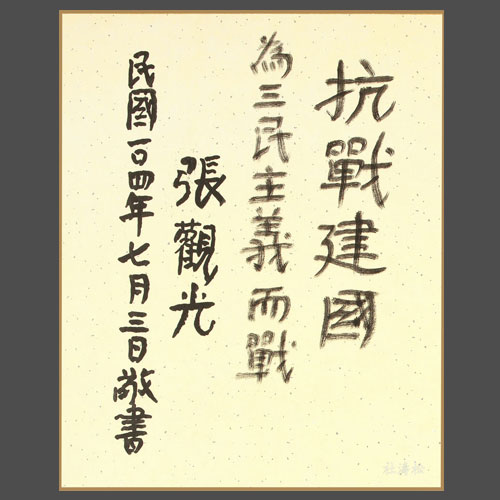 抗戰建國
為三民主義而戰
張觀光
民國一〇四年七月三日敬書